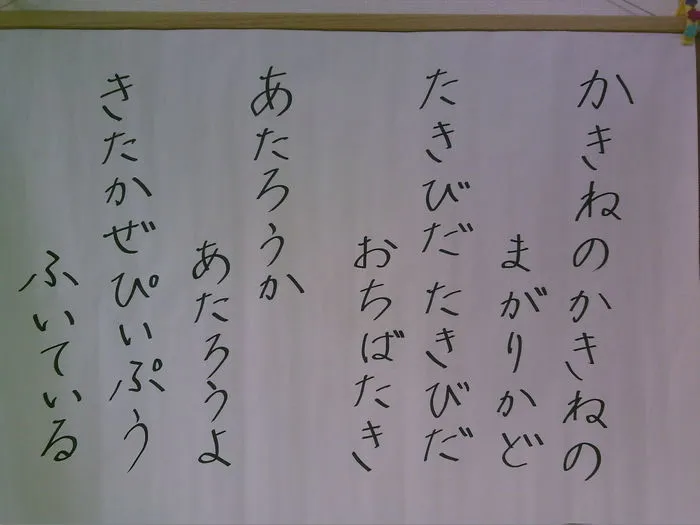 かきねのかきねの
まがりかど
たきびだ たきびだ
おちばたき
あたろうか
あたろうよ
きたかぜぴいぷう
ふいている